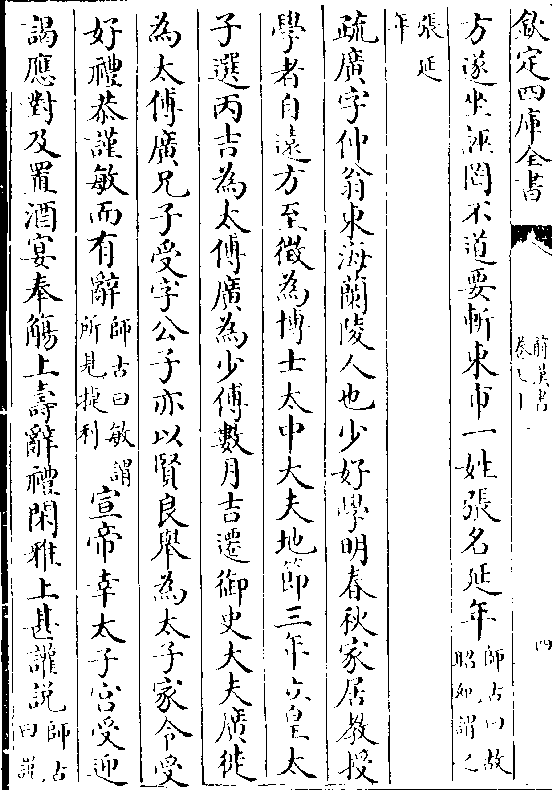 欽定四庫全書
前漢書
四
方遂坐誣罔不道要斬東市一姓張名延年師古曰故昭紀謂之
張延年
疏廣字仲翁東海蘭陵人也少好學明春秋家居教授
學者自遠方至徵為博士太中大夫地節三年立皇太
子選丙吉為太傅廣為少傅數月吉遷御史大夫廣徙
為太傅廣兄子受字公子亦以賢良舉為太子家令受
好禮恭謹敏而有辭師古曰敏謂所見捷利宣帝幸太子宮受迎
謁應對及置酒宴奉觴上壽辭禮閑雅上甚讙說師古曰說